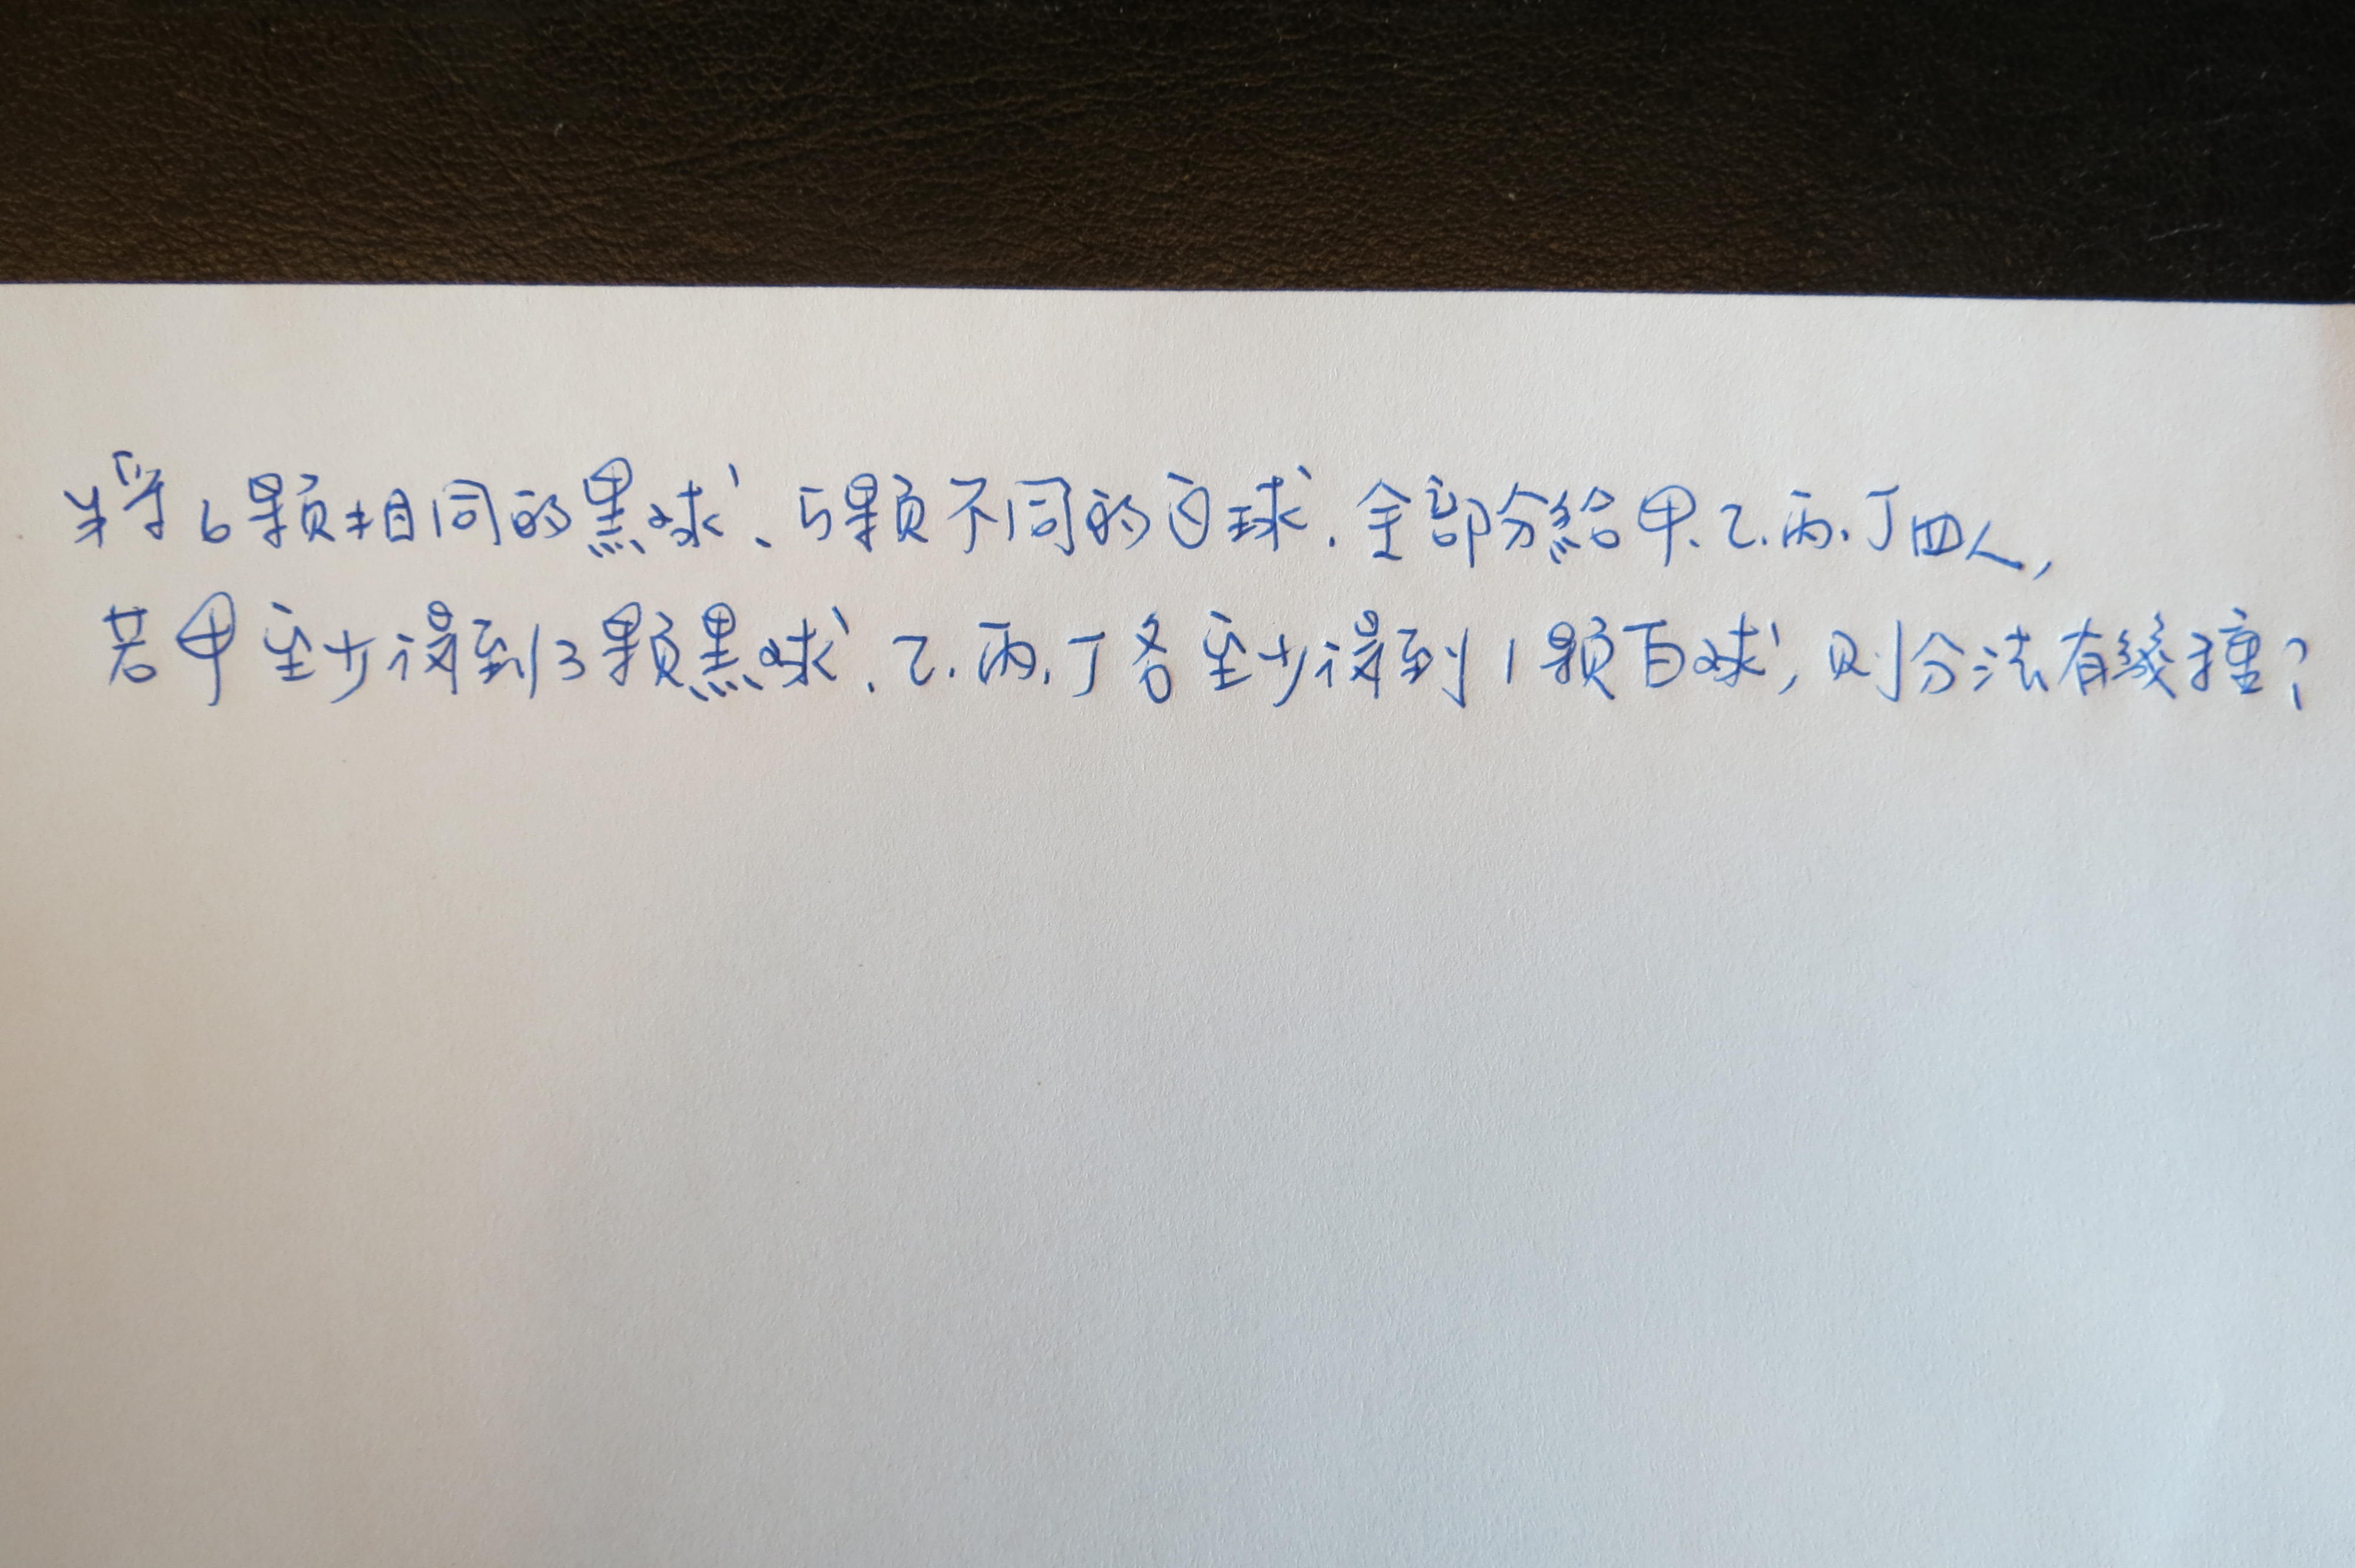 將6顆相同的黑球、5顆不同的白球.全部分給甲.乙.丙.丁四人,
若甲至少得到3顆黑球.乙.丙.丁各至少得到1顆白球,則分法有幾種?